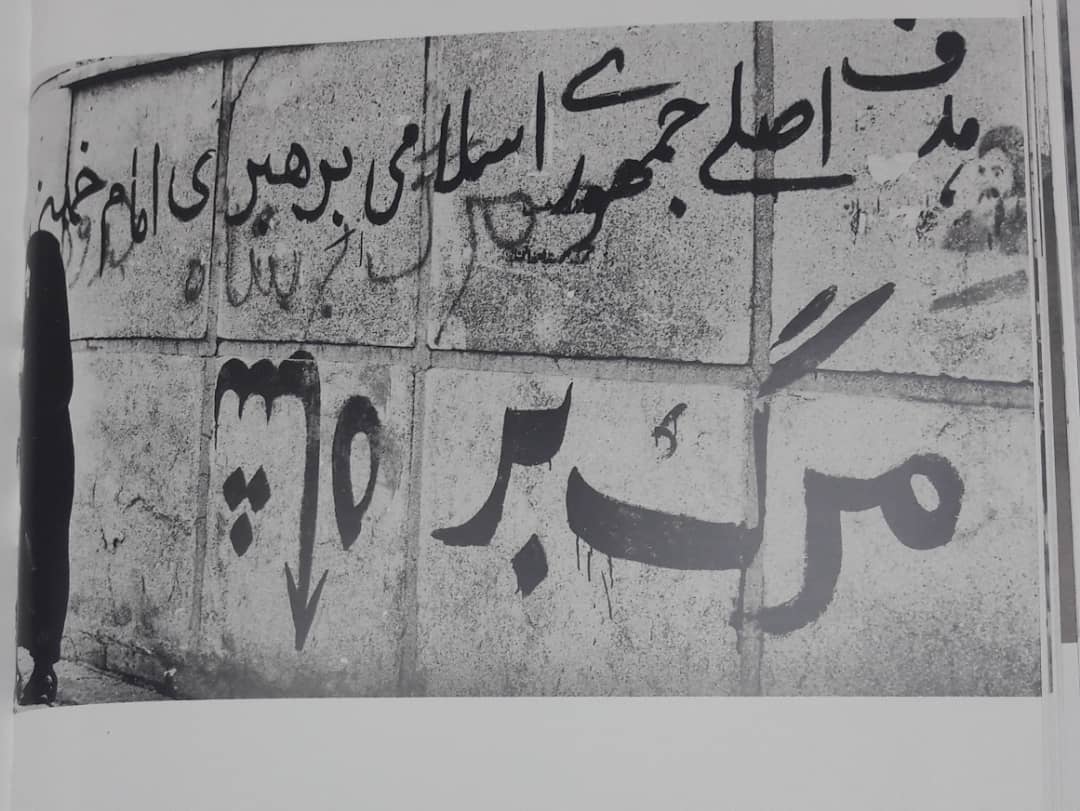 هدف اصلے جمهورے اسلامی بِرهبری امام خمینے
مرگ بر شاه